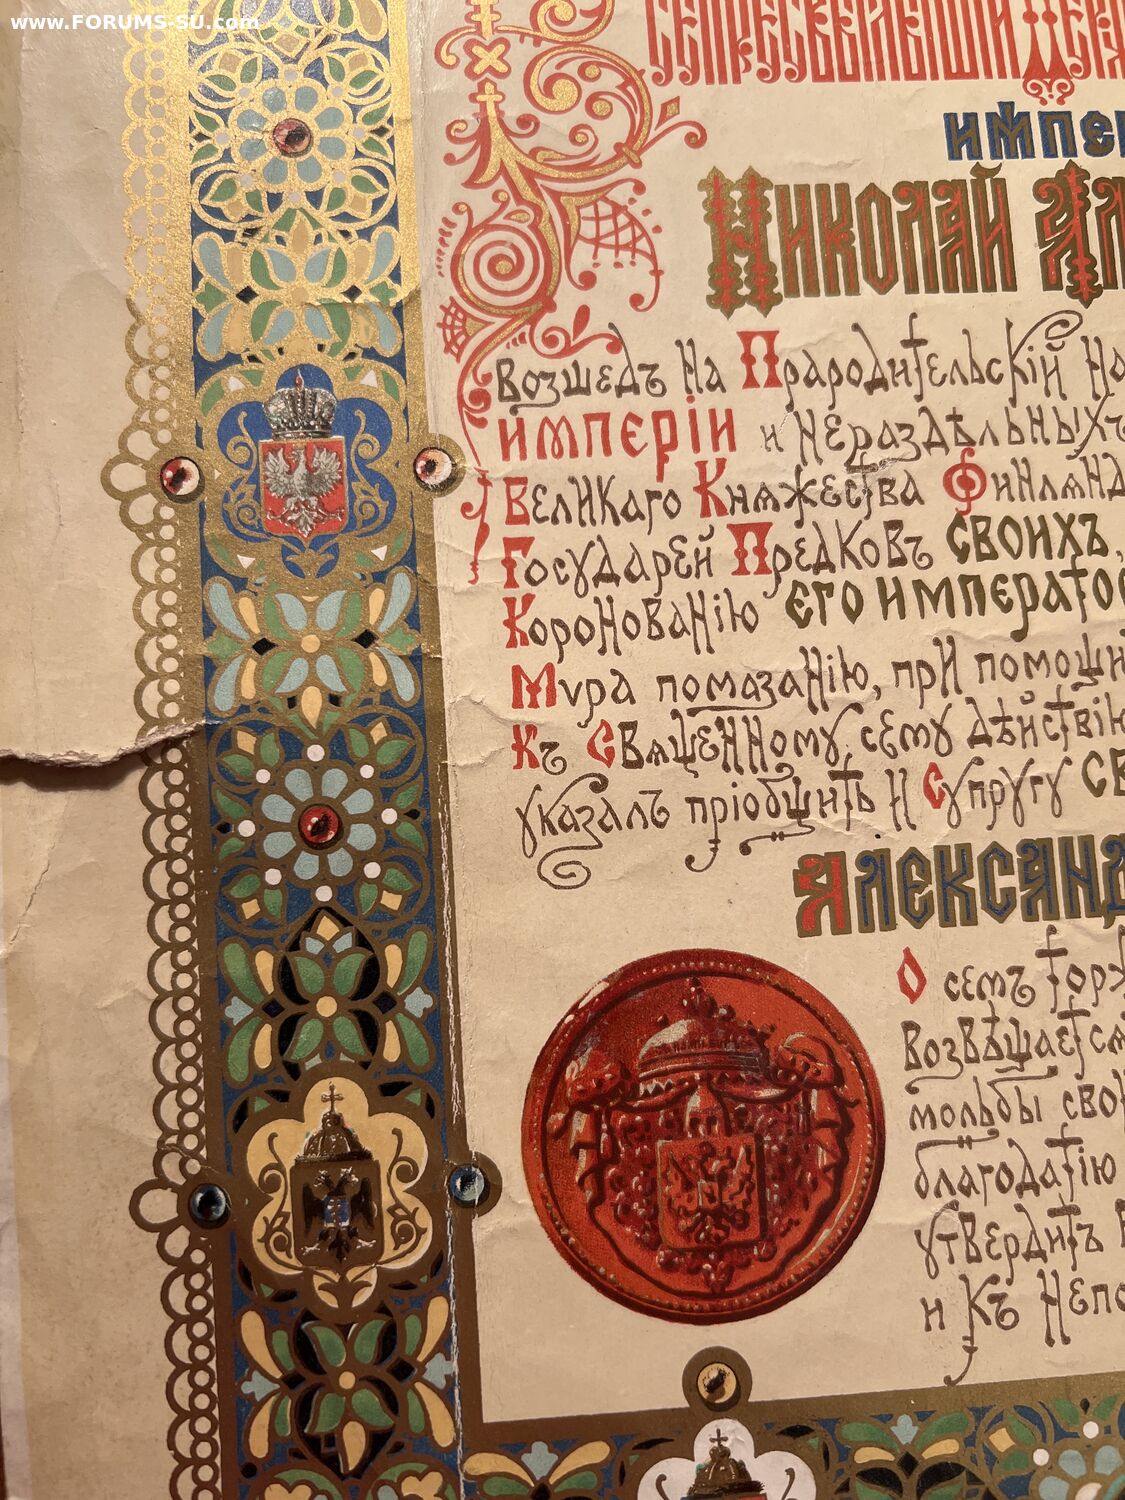 www.FORUMS-SU.com
импе
Николай Ал
возшедъ на Прародительскій На
имперіи и Нераздѣльныхъ
Великаго Княжества Финлянд
Государей Предковъ СВОИХЪ,
Коронованію его императо
Мѵра помазанію, при помощи
Къ Священному сему дѣйствію
указалъ пріобщить и Супругу СВ
Александ
О семъ торж
возвѣщается
мольбы сво
благодатію
утвердитъ
и Къ Непо